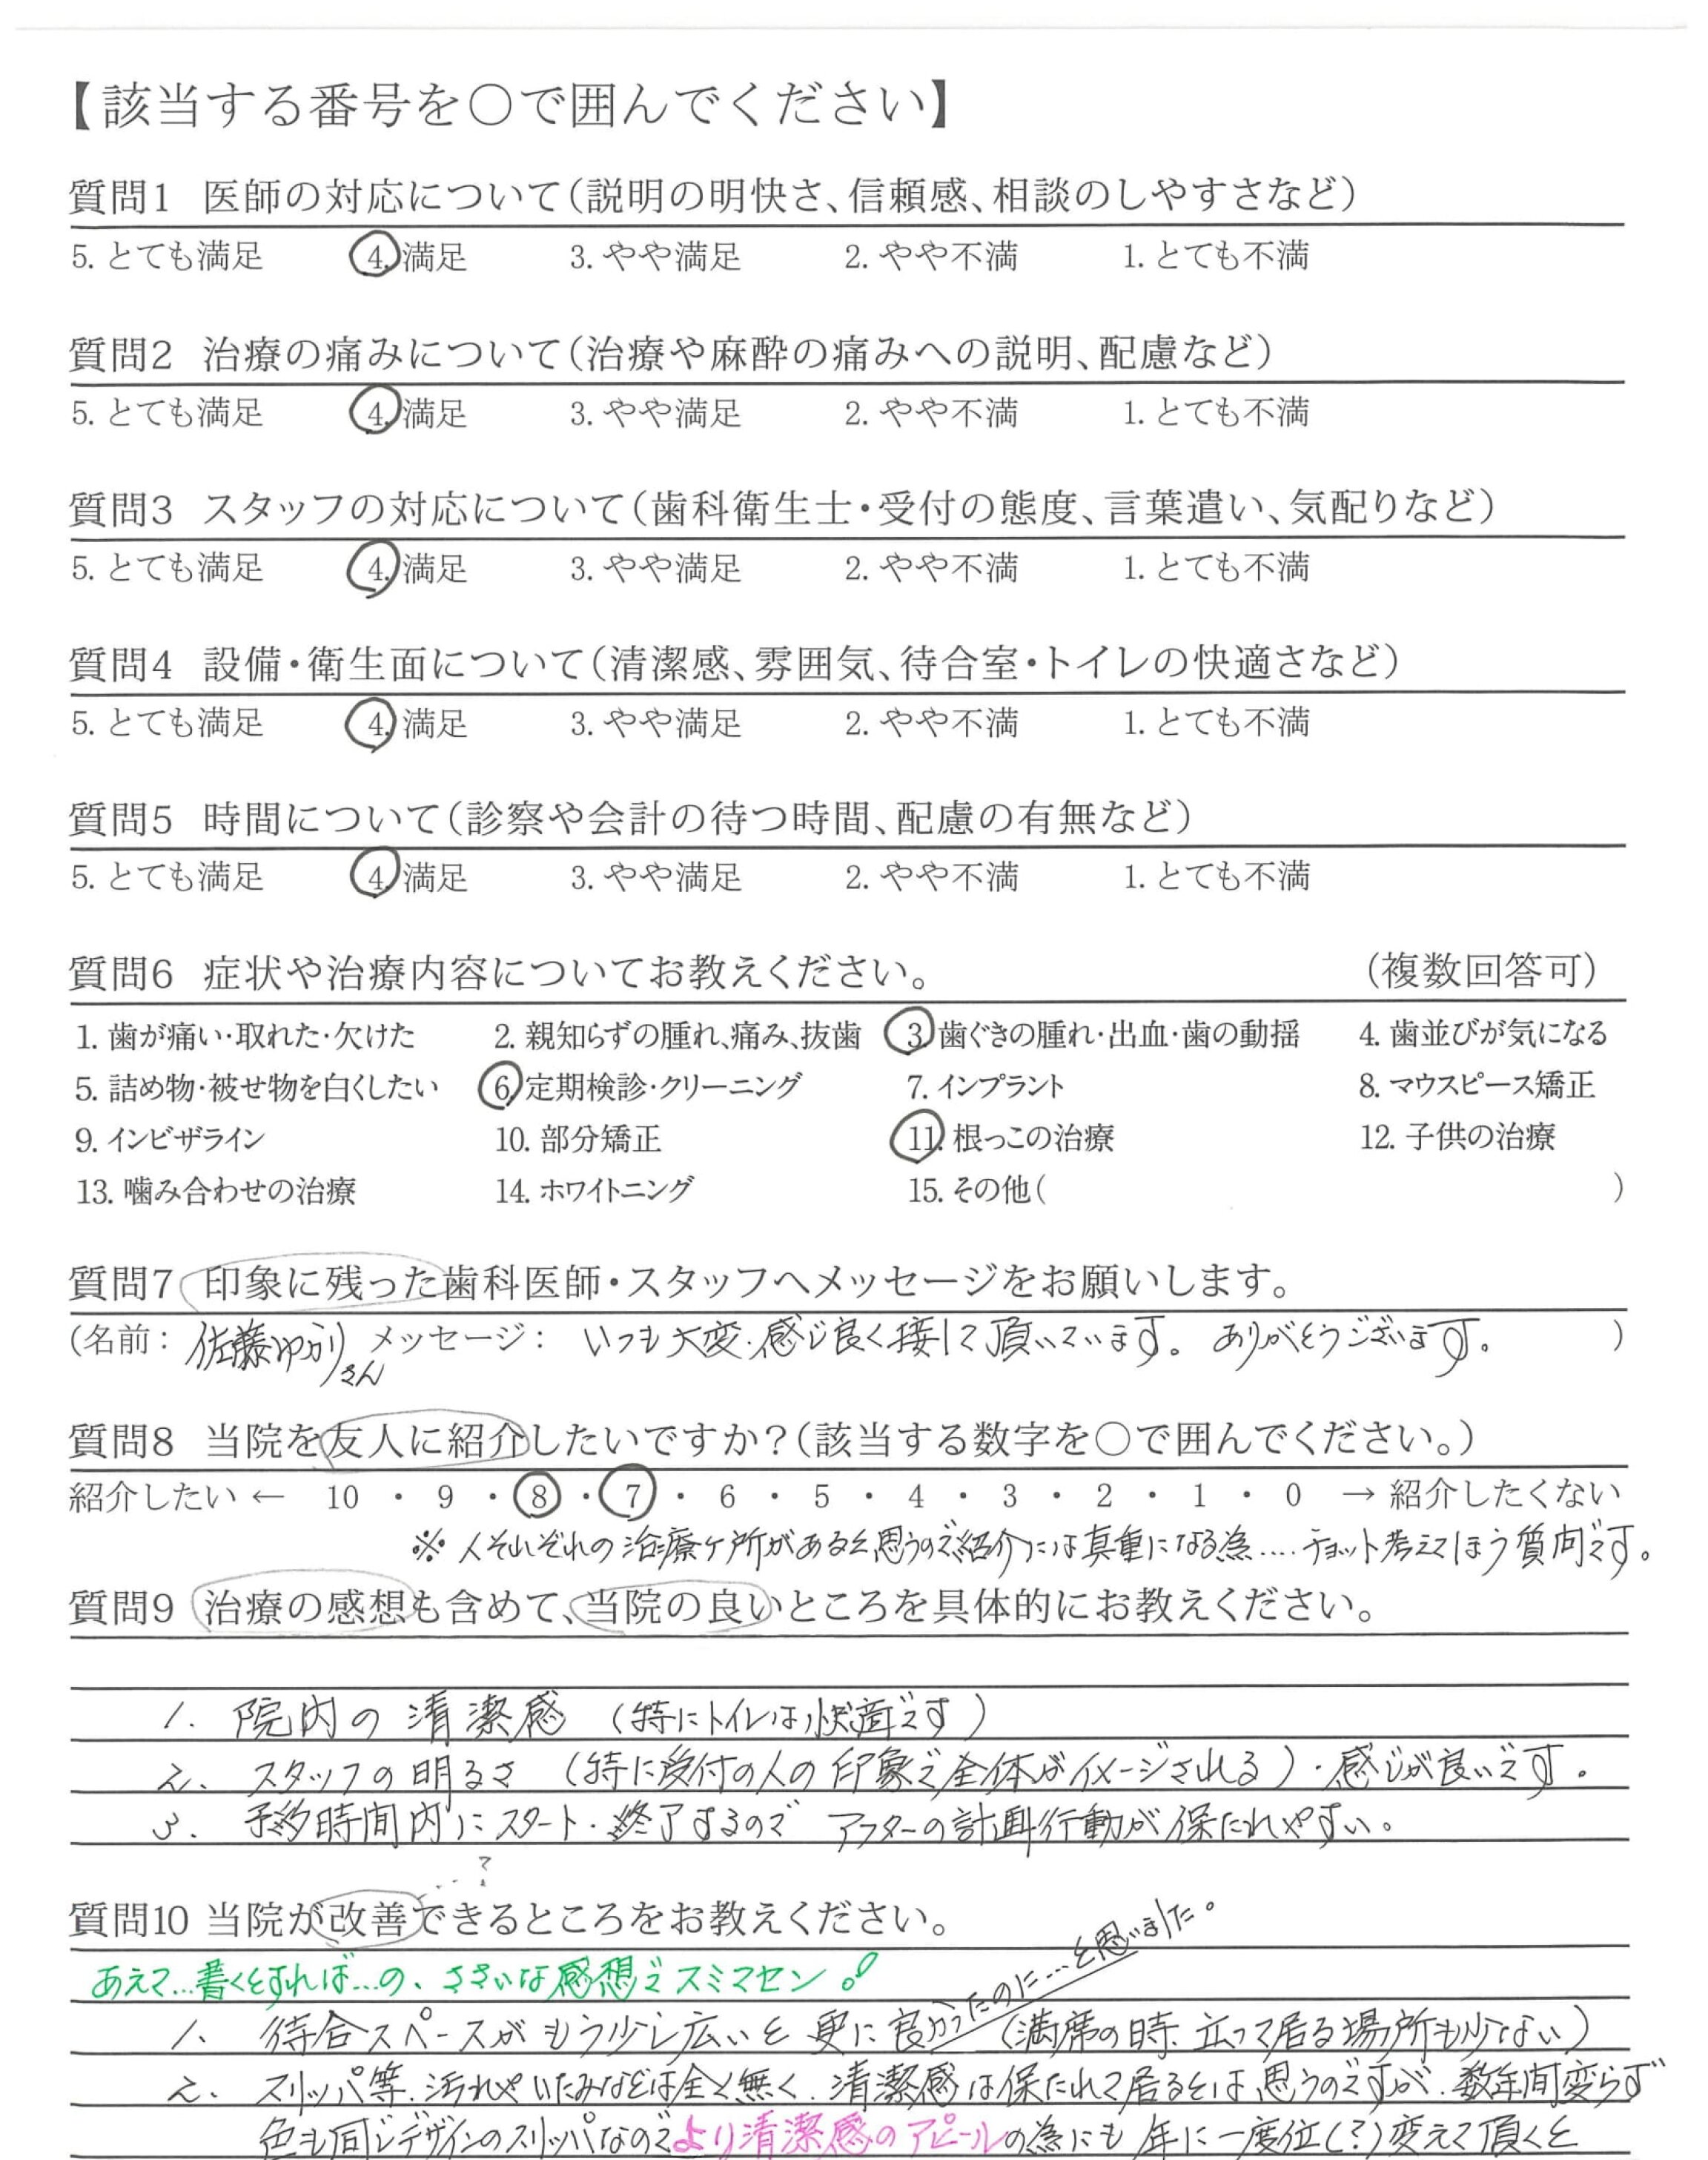 【該当する番号を○で囲んでください】
質問1 医師の対応について(説明の明快さ、信頼感、相談のしやすさなど)
5. とても満足 4. 満足 3. やや満足 2. やや不満 1. とても不満
質問2 治療の痛みについて(治療や麻酔の痛みへの説明、配慮など)
5. とても満足 4. 満足 3. やや満足 2. やや不満 1. とても不満
質問3 スタッフの対応について(歯科衛生士・受付の態度、言葉遣い、気配りなど)
5. とても満足 4. 満足 3. やや満足 2. やや不満 1. とても不満
質問4 設備・衛生面について(清潔感、雰囲気、待合室・トイレの快適さなど)
5. とても満足 4. 満足 3. やや満足 2. やや不満 1. とても不満
質問5 時間について(診察や会計の待つ時間、配慮の有無など)
5. とても満足 4. 満足 3. やや満足 2. やや不満 1. とても不満
質問6 症状や治療内容についてお教えください。 (複数回答可)
1. 歯が痛い・取れた・欠けた 2. 親知らずの腫れ、痛み、抜歯 3. 歯ぐきの腫れ・出血・歯の動揺 4. 歯並びが気になる
5. 詰め物・被せ物を白くしたい 6. 定期検診・クリーニング 7. インプラント 8. マウスピース矯正
9. インビザライン 10. 部分矯正 11. 根っこの治療 12. 子供の治療
13. 噛み合わせの治療 14. ホワイトニング 15. その他( )
質問7 印象に残った歯科医師・スタッフへメッセージをお願いします。
(名前: 佐藤ゆかりさん メッセージ: いつも大変・感じ良く接して頂いています。ありがとうございます。 )
質問8 当院を友人に紹介したいですか?(該当する数字を○で囲んでください。)
紹介したい ← 10 ・ 9 ・ 8 ・ 7 ・ 6 ・ 5 ・ 4 ・ 3 ・ 2 ・ 1 ・ 0 → 紹介したくない
※ 人それぞれの治療ケ所があると思うので紹介には真重になる為....チョット考えてしまう質問です。
質問9 治療の感想も含めて、当院の良いところを具体的にお教えください。
1. 院内の清潔感 (特にトイレは快適です)
2. スタッフの明るさ (特に受付の人の印象で全体がイメージされる)・感じが良いです。
3. 予約時間内にスタート・終了するので アフターの計画行動が保たれやすい。
質問10 当院が改善できるところをお教えください。
あえて...書くとすれば...の、ささいな感想でスミマセン。!
1. 待合スペースがもう少し広いと更に良かったのに...と思いました。(満席の時、立って居る場所も少ない)
2. スリッパ等、汚れやいたみなどは全く無く、清潔感は保たれて居るとは思うのですが、数年間変らず
色も同じデザインのスリッパなのでより清潔感のアピールの為にも年に一度位(?)変えて頂くと